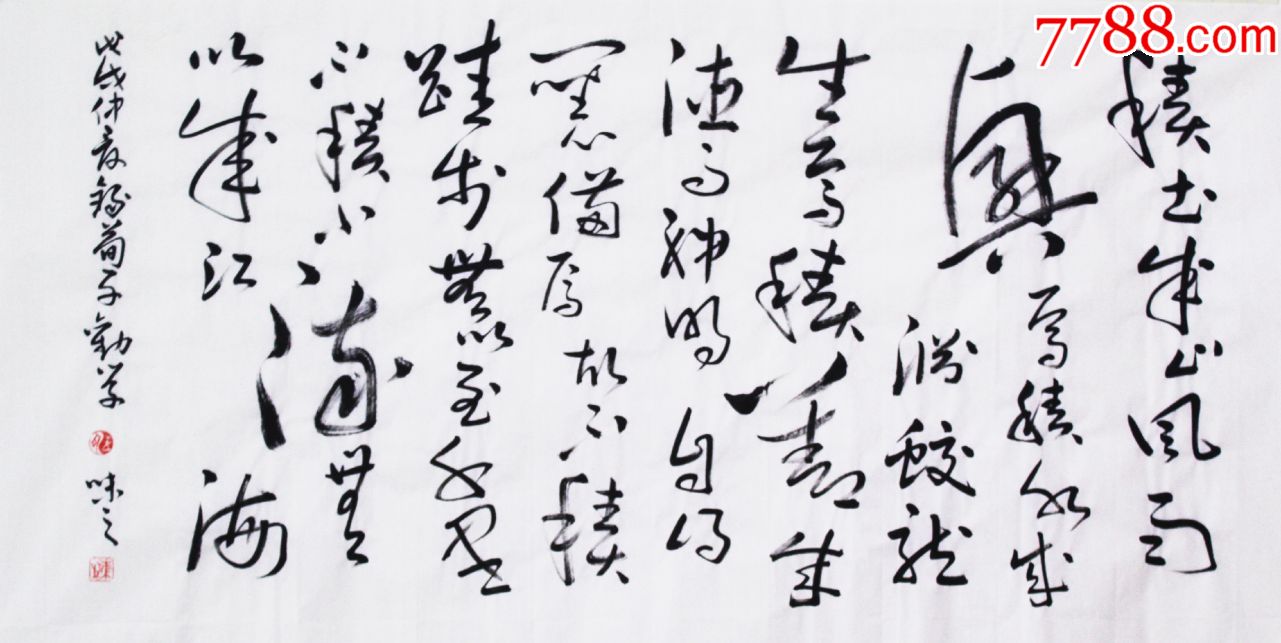 7788.com
積土成山風雨
興焉積水成
淵蛟龍
生焉積善成
德而神明自得
聖心備焉故不積
跬步無以至千里
不積小流無
以成江海
戊戌仲夏錄荀子勸學 味之